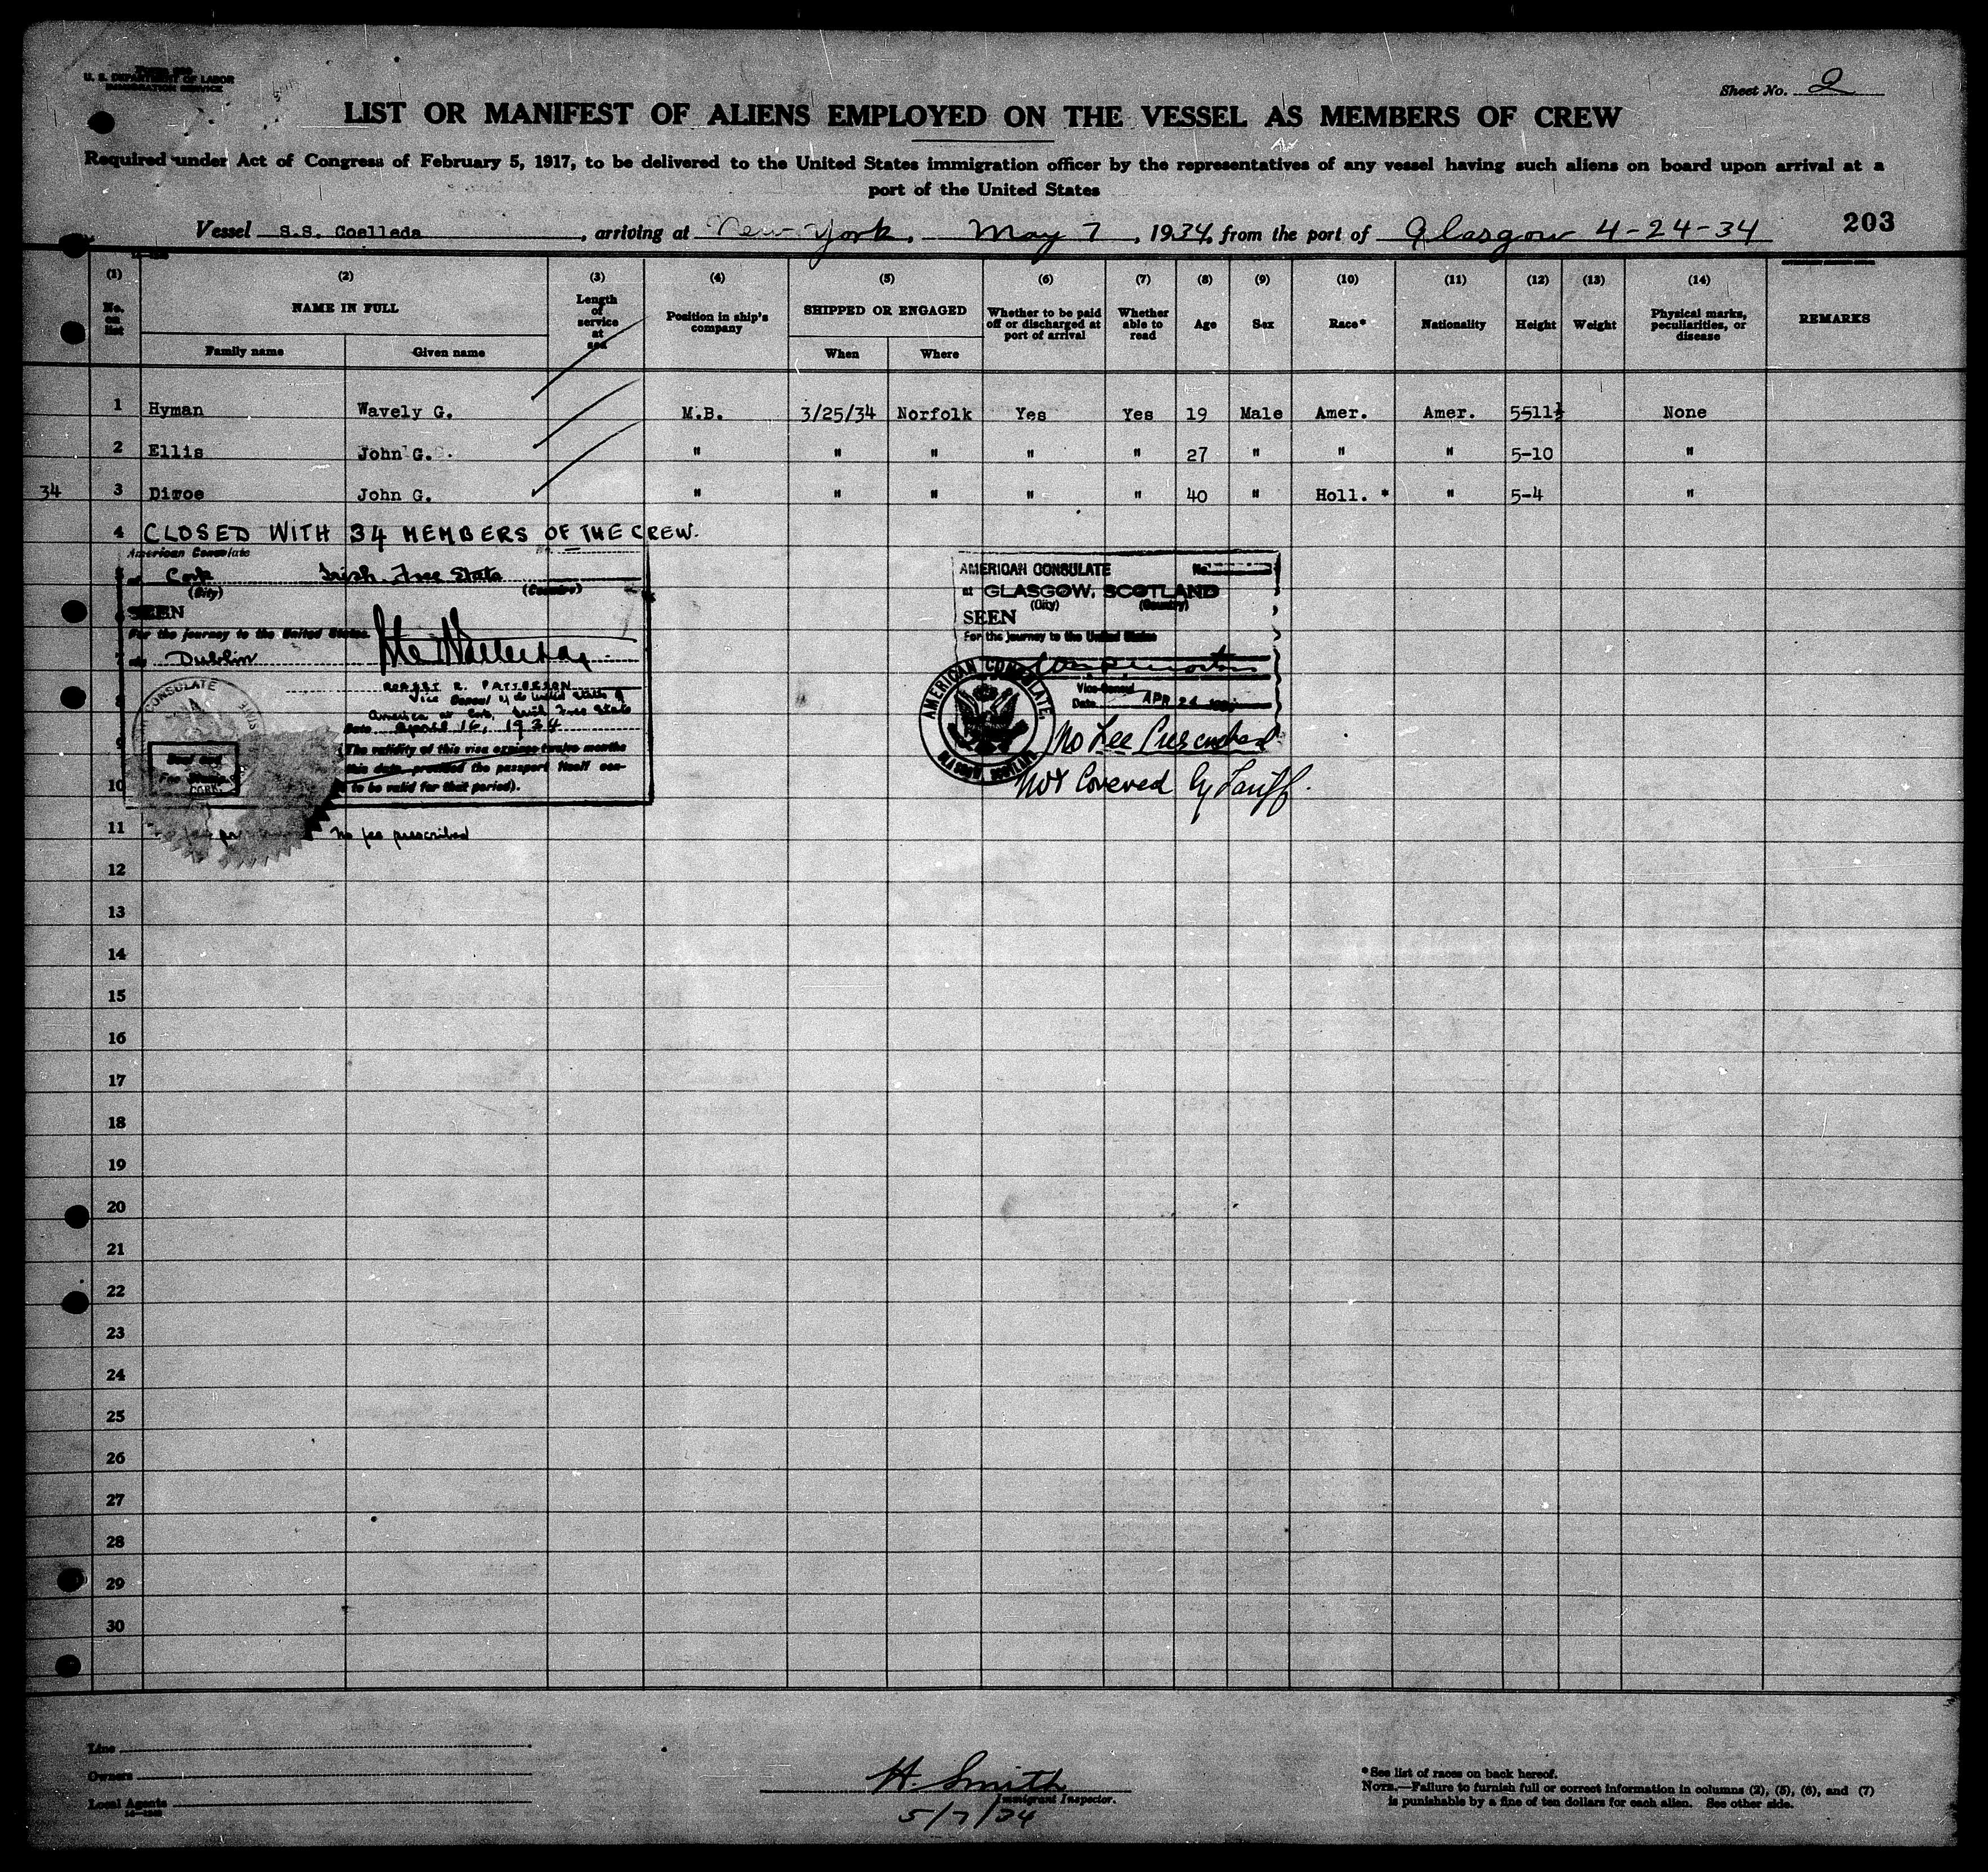 U. S. DEPARTMENT OF LABOR
IMMIGRATION SERVICE
Sheet No. 2
LIST OR MANIFEST OF ALIENS EMPLOYED ON THE VESSEL AS MEMBERS OF CREW
Required under Act of Congress of February 5, 1917, to be delivered to the United States immigration officer by the representatives of any vessel having such aliens on board upon arrival at a
port of the United States
Vessel S.S. Coelleda, arriving at New York, May 7, 1934, from the port of Glasgow 4-24-34
203
(1) (2) (3) (4) (5) (6) (7) (8) (9) (10) (11) (12) (13) (14)
No. on list NAME IN FULL Length of service at sea Position in ship's company SHIPPED OR ENGAGED Whether to be paid off or discharged at port of arrival Whether able to read Age Sex Race* Nationality Height Weight Physical marks, peculiarities, or disease REMARKS
Family name Given name When Where
1 Hyman Wavely G. M.B. 3/25/34 Norfolk Yes Yes 19 Male Amer. Amer. 5-11½ None
2 Ellis John G. " " " " " 27 " " " 5-10 "
34 3 Diroe John G. " " " " " 40 " Holl. * " 5-4 "
4 CLOSED WITH 34 MEMBERS OF THE CREW.
American Consulate
at Cork Irish Free State
(City) (Country)
SEEN
For the journey to the United States.
Dublin
PATTERSON
America at Cork, Irish Free State
Date April 16, 1934
(The validity of this visa expires twelve months
this date, provided the passport itself con-
to be valid for that period).
CONSULATE
CORK
No fee prescribed
AMERICAN CONSULATE No.
at GLASGOW, SCOTLAND
(City) (Country)
SEEN
For the journey to the United States
Vice Consul
Date APR 24
AMERICAN CONSULATE,
GLASGOW, SCOTLAND
No Fee Prescribed
Not Covered by Tariff.
5
6
7
8
9
10
11
12
13
14
15
16
17
18
19
20
21
22
23
24
25
26
27
28
29
30
Line
Owners
Local Agents
H. Smith
Immigrant Inspector.
5/7/34
*See list of races on back hereof.
NOTE.—Failure to furnish full or correct information in columns (2), (5), (6), and (7)
is punishable by a fine of ten dollars for each alien. See other side.